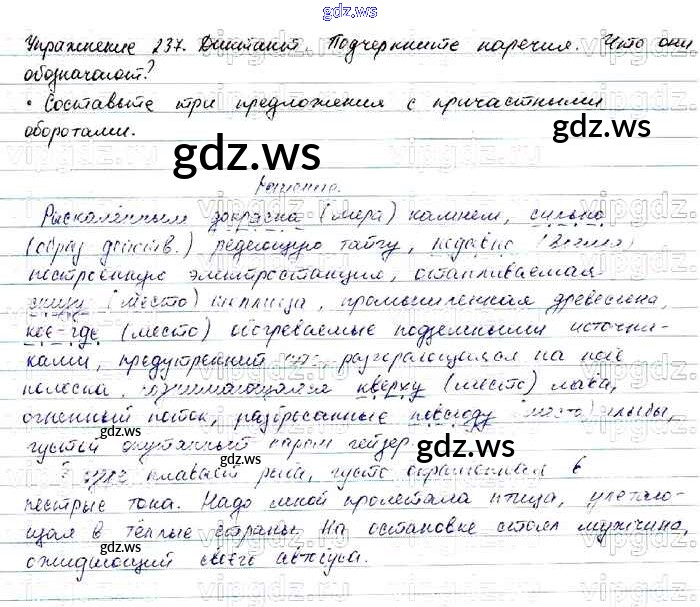 gdz.ws
Упражнение 237. Диктант. Подчеркните наречия. Что они
обозначают?
• Составьте три предложения с причастными
оборотами.
gdz.ws
gdz.ws
Решение.
докрасна (мера) камнем, сильно
(образ действ.) редеющую тайгу, недавно (время)
построенную электростанция, отапливаемая
снизу (место) теплица, промышленная древесина,
кое-где (место) обогреваемые подземными источни-
ками, предутренний разгорающаяся на небе
полоска, кверху (место) лава,
огненный поток, разбросанные повсюду (место) глыбы,
густой окутанный паром гейзер.
плавает рыба, густо окрашенная в
пестрые тона. Надо мной пролетала птица, улетаю-
щая в тёплые страны. На остановке стоял мужчина,
ожидающий своего автобуса.
gdz.ws
gdz.ws